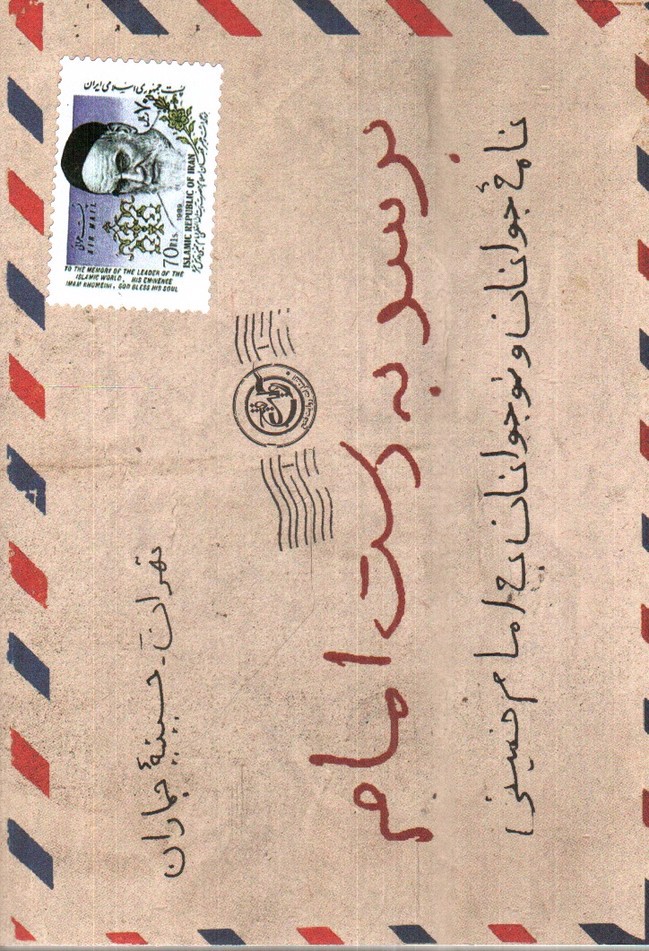 پست جمهوری اسلامی ایران
۷۰ ریال
پست هوایی
AIR MAIL
1989
70 Rls.
ISLAMIC REPUBLIC OF IRAN
TO THE MEMORY OF THE LEADER OF THE
ISLAMIC WORLD, HIS EMINENCE
IMAM KHOMEINI, GOD BLESS HIS SOUL
تهران - حسینیهٔ جماران
برسد به دست امام
نامهٔ جوانان و نوجوانان به امام خمینی